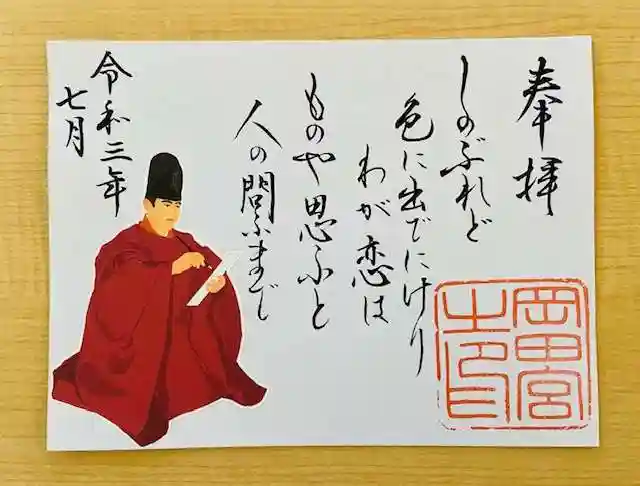 奉拝
しのぶれど
色に出でにけり
わが恋は
ものや思ふと
人の問ふまで
令和三年
七月
岡田宮
之印